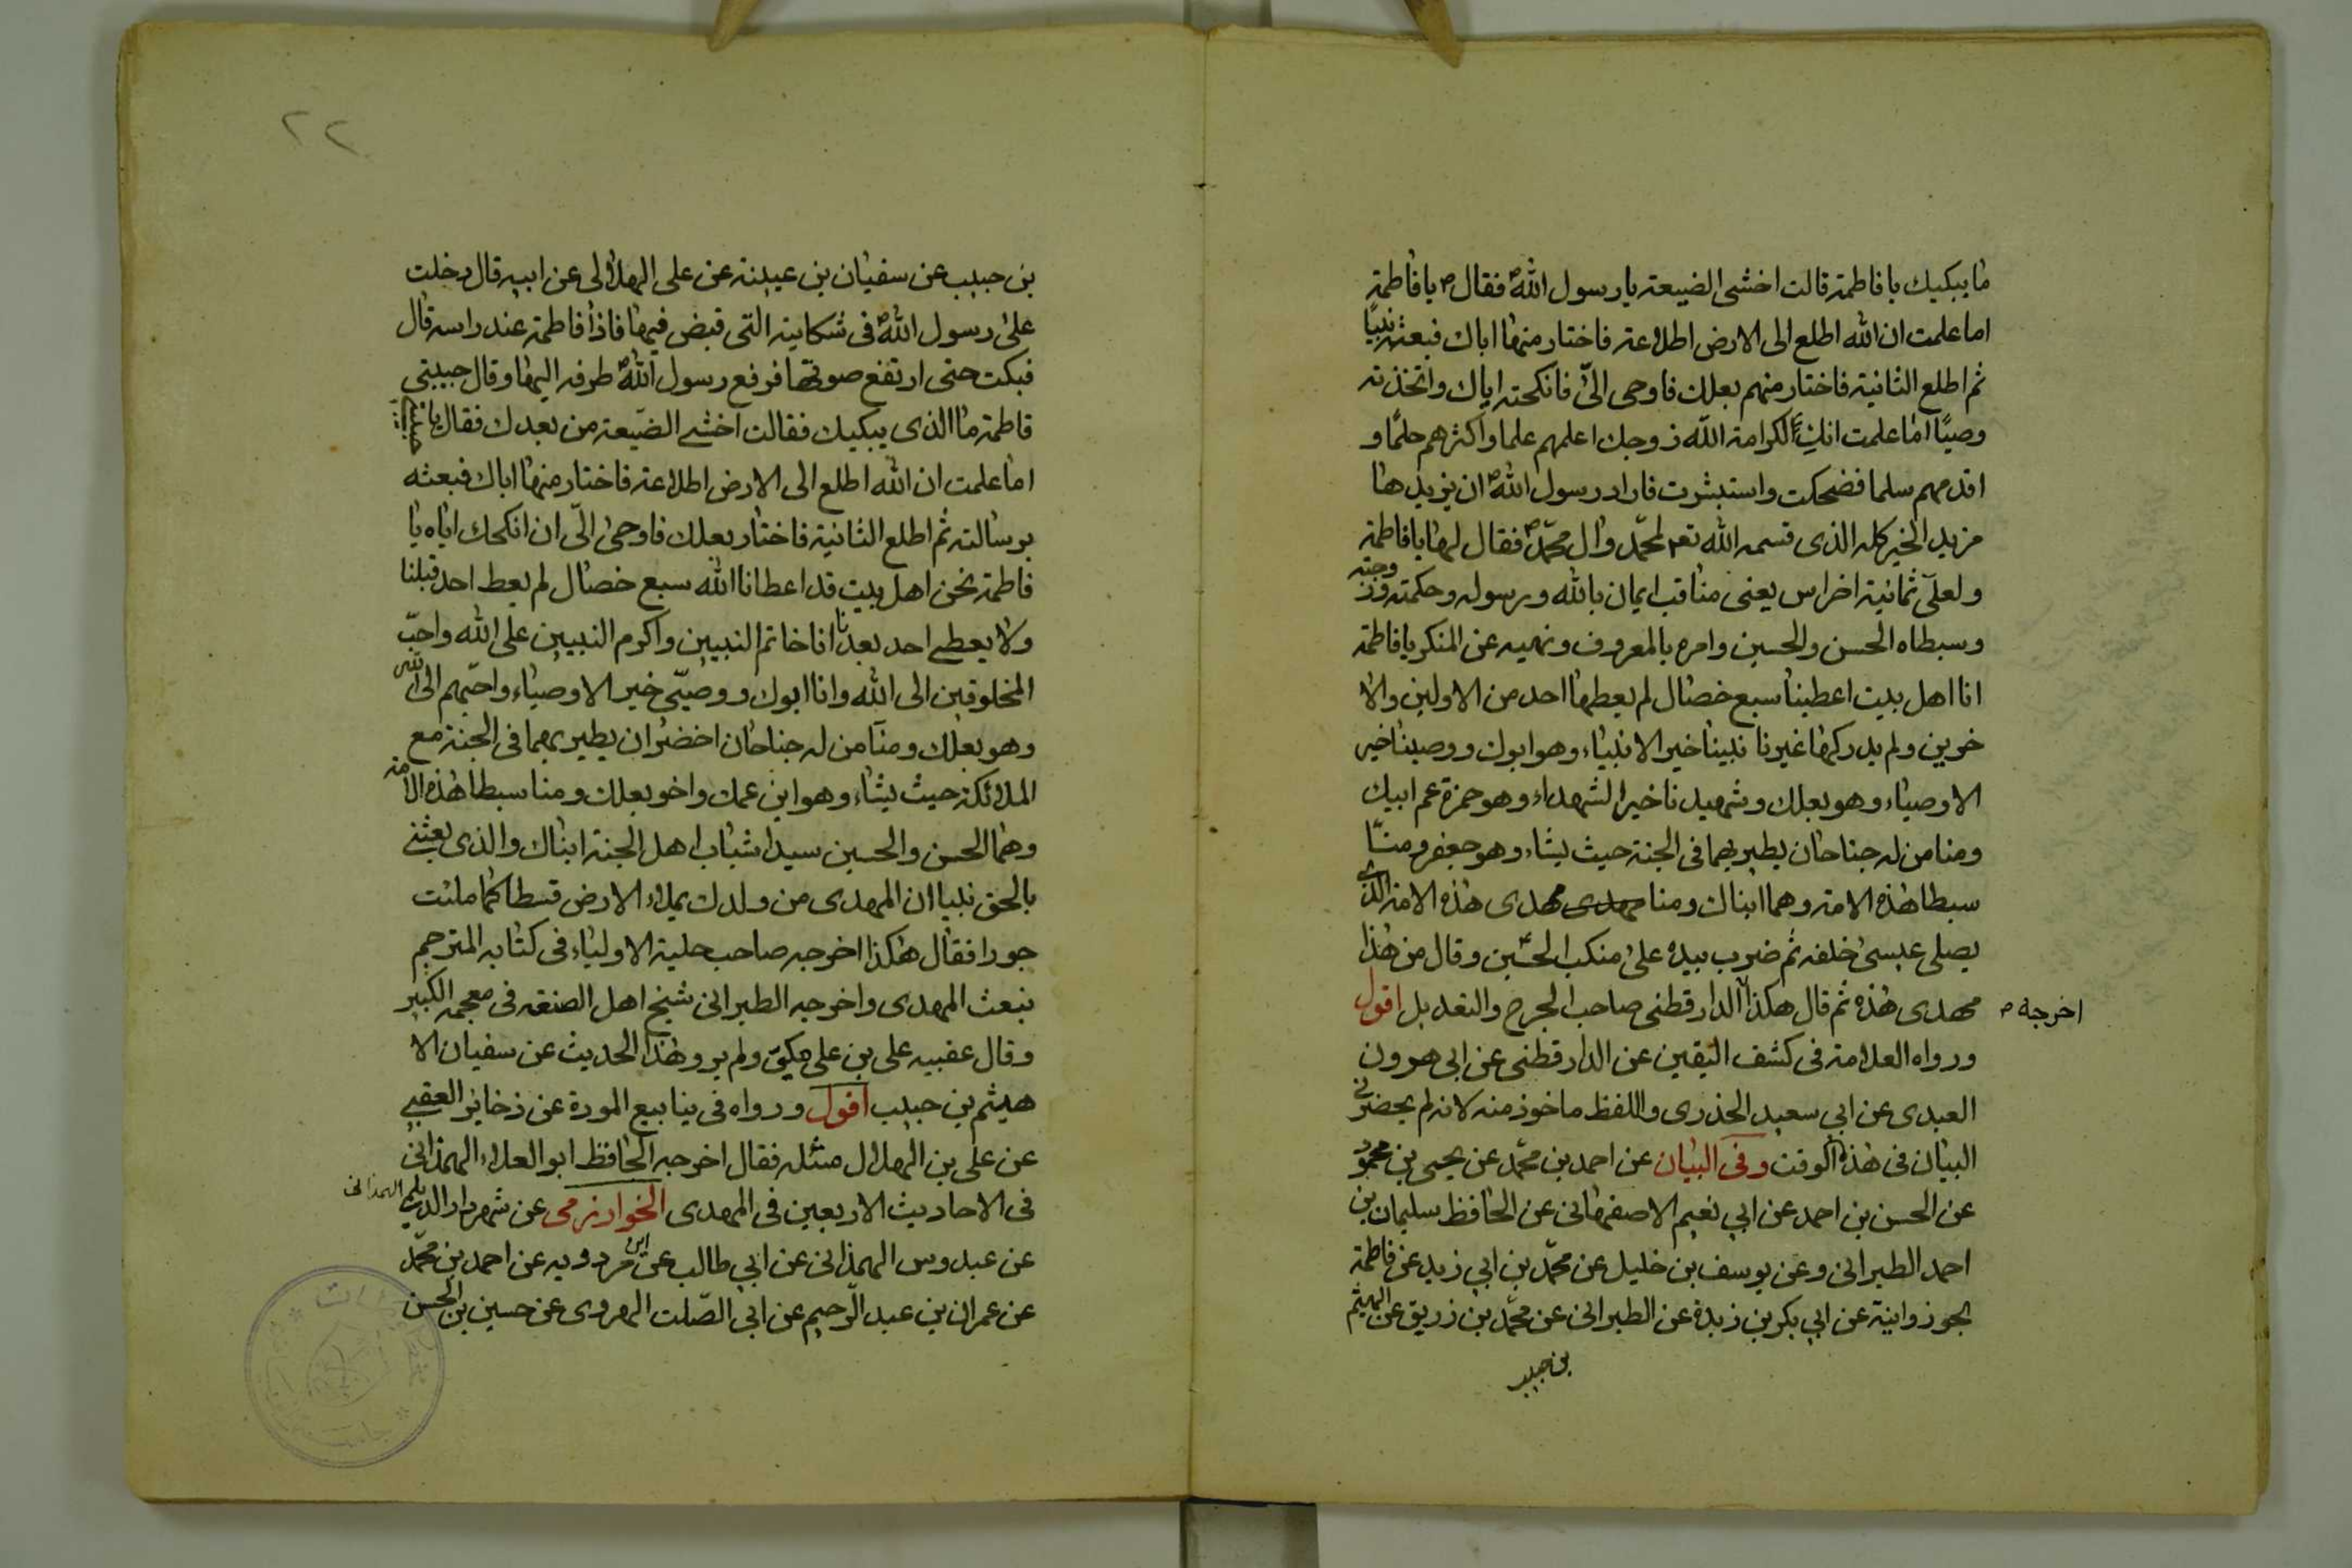 ما يبكيك يا فاطمة قالت اخشى الضيعة يا رسول اللهص فقال ص يا فاطمة
اما علمت ان الله اطلع الى الارض اطلاعة فاختار منها اباك فبعثه نبيًا
ثم اطلع الثانية فاختار منهم بعلك فاوحى الىّ فانكحته اياك واتخذته
وصيًا اما علمت انكِ لكرامة الله زوجك اعلمهم علما واكثرهم حلمًا و
اقدمهم سلما فضحكت واستبشرت فاراد رسول اللهص ان يزيدها
مزيد الخير كله الذى قسمه الله تعـ لمحمّد وال محمّدص فقال لها يا فاطمة
ولعلىّ ثمانية اضراس يعنى مناقب ايمان بالله ورسوله وحكمته وزوجته
وسبطاه الحسن والحسين وامره بالمعروف ونهيه عن المنكر يا فاطمة
انا اهل بيت اعطينا سبع خصال لم يعطها احد من الاولين والا
خرين ولم يدركها غيرنا نبينا خير الانبياء وهو ابوك ووصينا خير
الاوصياء وهو بعلك وشهيدنا خير الشهداء وهو حمزة عم ابيك
ومنا من له جناحان يطير بهما فى الجنة حيث يشاء وهو جعفر ومنّا
سبطا هذه الامة وهما ابناك ومنا مهدى هذه الامة الذى
يصلى عيسى خلفه ثم ضرب بيده على منكب الحسين وقال من هذا
مهدى هذه ثم قال هكذا الدارقطنى صاحب الجرح والتعديل اقول
اخرجه ص
ورواه العلامة فى كشف اليقين عن الدارقطنى عن ابى هرون
العبدى عن ابي سعيد الخذرى واللفظ ماخوذ منه لانه لم يحضرنى
البيان فى هذا الوقت وفى البيان عن احمد بن محمّد عن يحيى بن محمود
عن الحسن بن احمد عن ابي نعيم الاصفهانى عن الحافظ سليمان بن
احمد الطبرانى وعن يوسف بن خليل عن محمّد بن ابي زيد عن فاطمة
الجوزدانية عن ابي بكر بن زيدة عن الطبرانى عن محمّد بن زريق عن الهيثم
بن حبيب
٢٢
بن حبيب عن سفيان بن عيينة عن على الهلالى عن ابيه قال دخلت
على رسول اللهص فى شكايته التى قبض فيها فاذا فاطمة عند راسه قال
فبكت حتى ارتفع صوتها فرفع رسول اللهص طرفه اليها وقال حبيبتى
فاطمة ما الذى يبكيك فقالت اخشى الضّيعة من بعدك فقال يا حبيبتى
اما علمت ان الله اطلع الى الارض اطلاعة فاختار منها اباك فبعثه
برسالته ثم اطلع الثانية فاختار بعلك فاوحى الىّ ان انكحك اياه يا
فاطمة نحن اهل بيت قد اعطانا الله سبع خصال لم يعط احد قبلنا
ولا يعطى احد بعدنا انا خاتم النبيين واكرم النبيين على الله واحبّ
المخلوقين الى الله وانا ابوك ووصيّى خير الاوصياء واحبّهم الى الله
وهو بعلك ومنا من له جناحان اخضران يطير بهما فى الجنة مع
الملائكة حيث يشاء وهو ابن عمك واخو بعلك ومنا سبطا هذه الامة
وهما الحسن والحسين سيدا شباب اهل الجنة ابناك والذى بعثنى
بالحق نبيا ان المهدى من ولدك يملاء الارض قسطا كما ملئت
جورا فقال هكذا اخرجه صاحب حلية الاولياء فى كتابه المترجم
بنعت المهدى واخرجه الطبرانى شيخ اهل الصنعة فى معجمه الكبير
وقال عقيبه على بن على مكىّ ولم يرو هذا الحديث عن سفيان الا
هيثم بن حبيب اقول ورواه فى ينابيع المودة عن ذخائر العقبى
عن على بن الهلال مثله فقال اخرجه الحافظ ابو العلاء الهمذانى
فى الاحاديث الاربعين فى المهدى الخوارزمى عن شهردار الديلمى الهمذانى
عن عبدوس الهمذانى عن ابي طالب عن ابن مردويه عن احمد بن محمّد
عن عمران بن عبد الرّحيم عن ابي الصّلت الهروى عن حسين بن الحسن